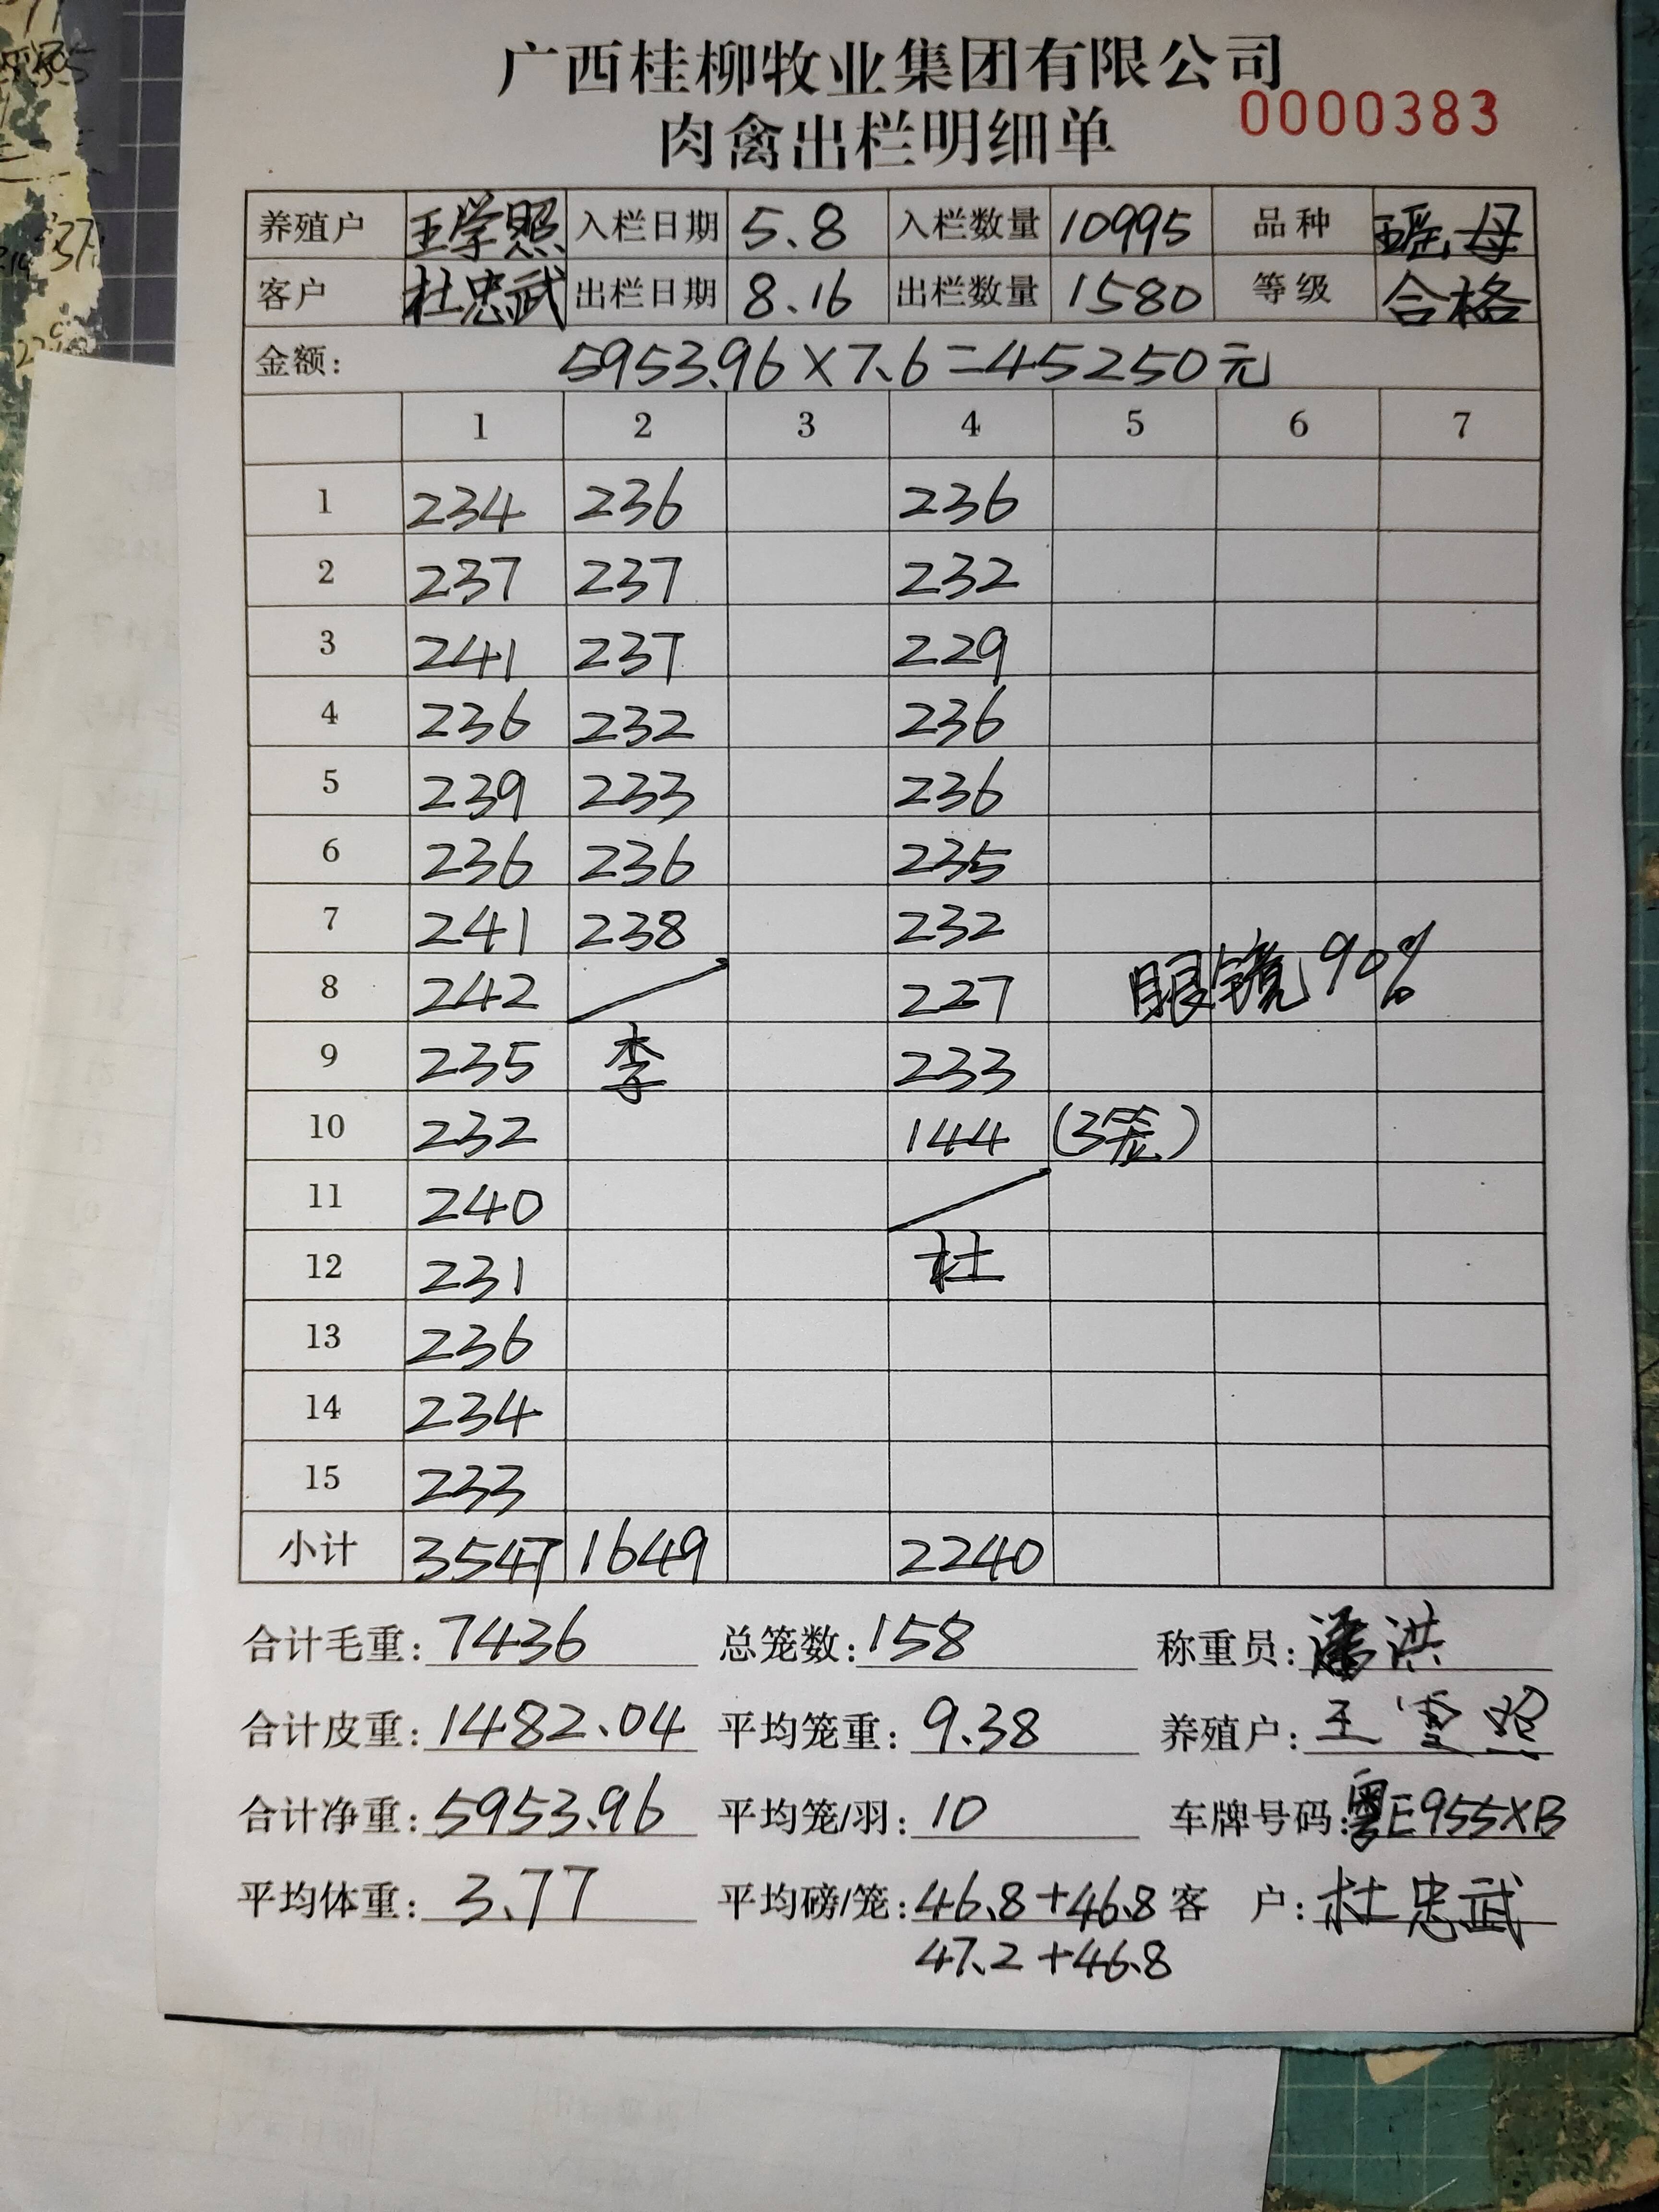 广西桂柳牧业集团有限公司
肉禽出栏明细单 0000383
养殖户 王学照 入栏日期 5.8 入栏数量 10995 品种 瑶母
客户 杜忠武 出栏日期 8.16 出栏数量 1580 等级 合格
金额: 5953.96×7.6=45250元
1 2 3 4 5 6 7
1 234 236 236
2 237 237 232
3 241 237 229
4 236 232 236
5 239 233 236
6 236 236 235
7 241 238 232
8 242 227 眼镜90%
9 235 李 233
10 232 144 (3笼)
11 240
12 231 杜
13 236
14 234
15 233
小计 3547 1649 2240
合计毛重: 7436 总笼数: 158 称重员: 洪
合计皮重: 1482.04 平均笼重: 9.38 养殖户: 王雪照
合计净重: 5953.96 平均笼/羽: 10 车牌号码: 粤E955XB
平均体重: 3.77 平均磅/笼: 46.8+46.8 客 户: 杜忠武
47.2+46.8